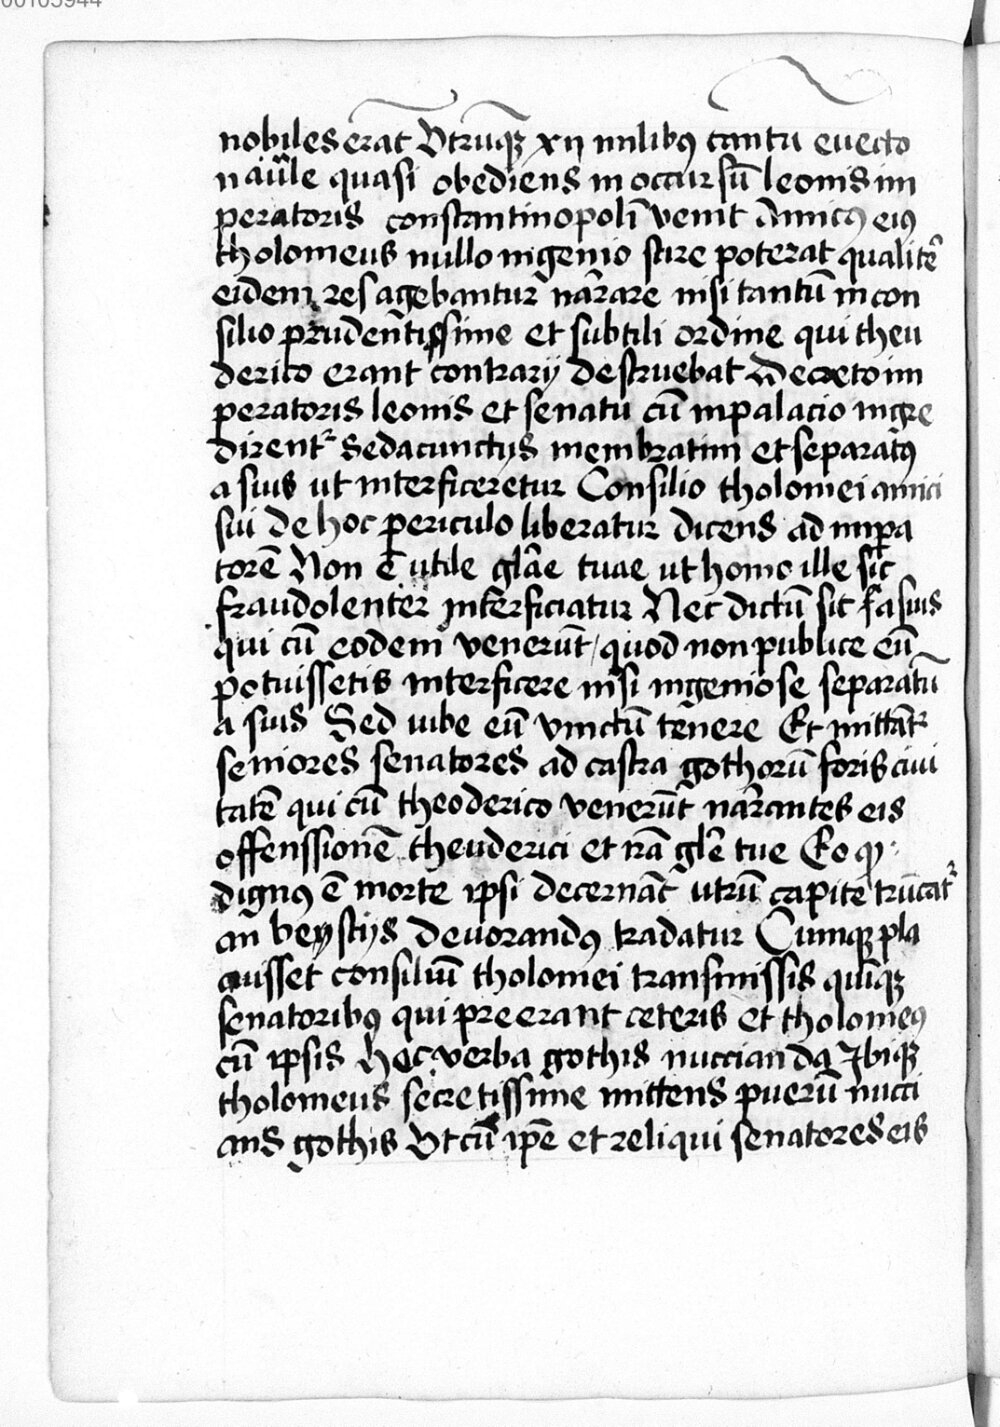 00105944
nobiles erāt Vtrūqʒ xij milibus tantu euecto
nauile quasi obediens in occursū leonis im
peratoris constantinopolī venit Amicus eius
tholomeus nullo ingenio scire poterat qualitē
eidem res agebantur nārare nisi tantū in con
silio prudentissime et subtili ordine qui theu
derico erant contrarij destruebat Decreto im
peratoris leonis et senatu cū in palacio ingre
dirent~ Sed a cunctijs membratim et separatus
a suis ut interficeretur Consilio tholomei amici
sui de hoc periculo liberatur dicens ad impa
torē Non ē utile glāe tuae ut homo ille sic
fraudolenter interficiatur Nec dictū sit a suis
qui cū eodem venerūt / quod non publice eū
potuissetis interficere nisi ingeniose separatū
a suis Sed iube eū vinctū tenere Et mittāt~
seniores senatores ad castra gothorū foris ciui
tatē qui cū theoderico venerūt nārantes eis
offenssionē theuderici et irā glē tue Eo qͻ
dignus ē morte ipsi decernāt utrū capite trūcat~
an beystijs deuorandus tradatur Cumqʒ pla
cuisset consiliū tholomei transmissis quīqʒ
senatoribus qui preerant ceteris et tholomeus
cū ipsis hec verba gothis nuccianda Ibiqʒ
tholomeus secretissime mittens puerū nucci
ans gothis Vt cū ipē et reliqui senatores eis